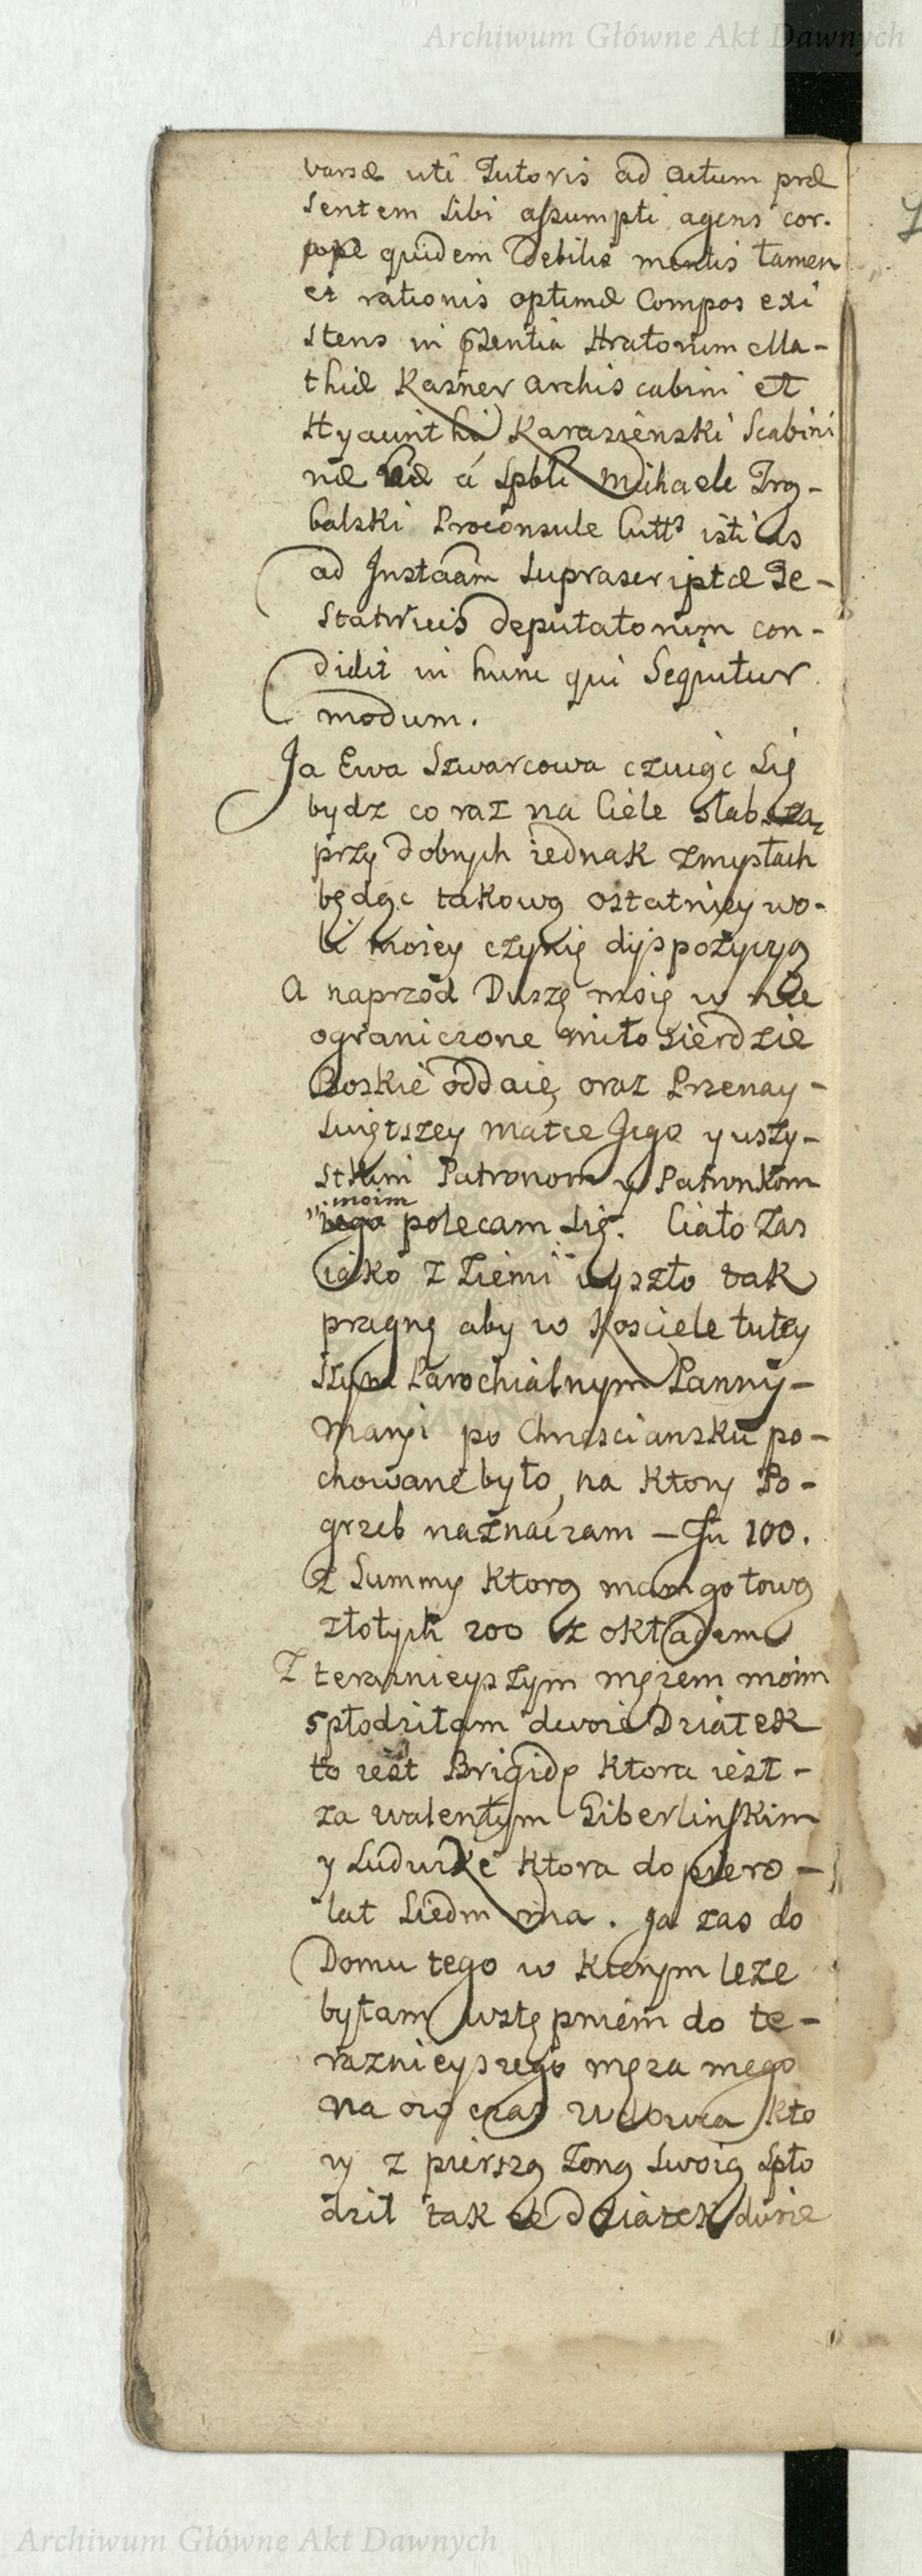 Archiwum Główne Akt Dawnych
varsæ uti Tutoris ad actum præ
sentem sibi assumpti agens cor-
pore quidem debilis mentis tamen
et rationis optimæ Compos exi
stens in pzentia Hratorum Ma-
thiæ Kasner Archiscabini et
Hyacinthi Karaszenski Scabini
a Spbli Michaele Trą-
balski Proconsule Cutts istius
ad Jnstaam suprascriptæ Te-
statricis deputatorum con-
didit in hunc qui sequitur
modum.
Ja Ewa Szwarcowa czuiąc się
bydz co raz na Ciele słabszą
przy dobrych iednak zmysłach
będąc takową ostatniey wo-
li moiey czynię dyspozycyą
A naprzod Duszę moię w nie
ograniczone miłosierdzie
Boskie oddaię, oraz Przenay-
swiętszey matce Jego y wszy-
stkim Patronom y Patronkom
moim
iego polecam się. Ciało zas
iako z ziemi wyszło tak
pragnę aby w Kosciele tutey
szym Parochialnym Panny-
Maryi po Chrescianzku po-
chowane było, na ktory Po-
grzeb naznaczam - fu 100.
z summy ktorą mam gotową
złotych 200 z okładem
Z teraznieyszym mężem moim
spłodziłam dwoie Dziatek
to iest Brigidę ktora iest -
za walentym Giberlinskim
y Ludwikę ktora dopiero -
lat siedm ma. ja zas do
Domu tego w ktorym leze
byłam wstępniem do te-
raznieyszego męza mego
na ow czas Wdowca kto
ry z pierszą zoną swoią spło
dził tak ze dziatek dwoie
Archiwum Główne Akt Dawnych